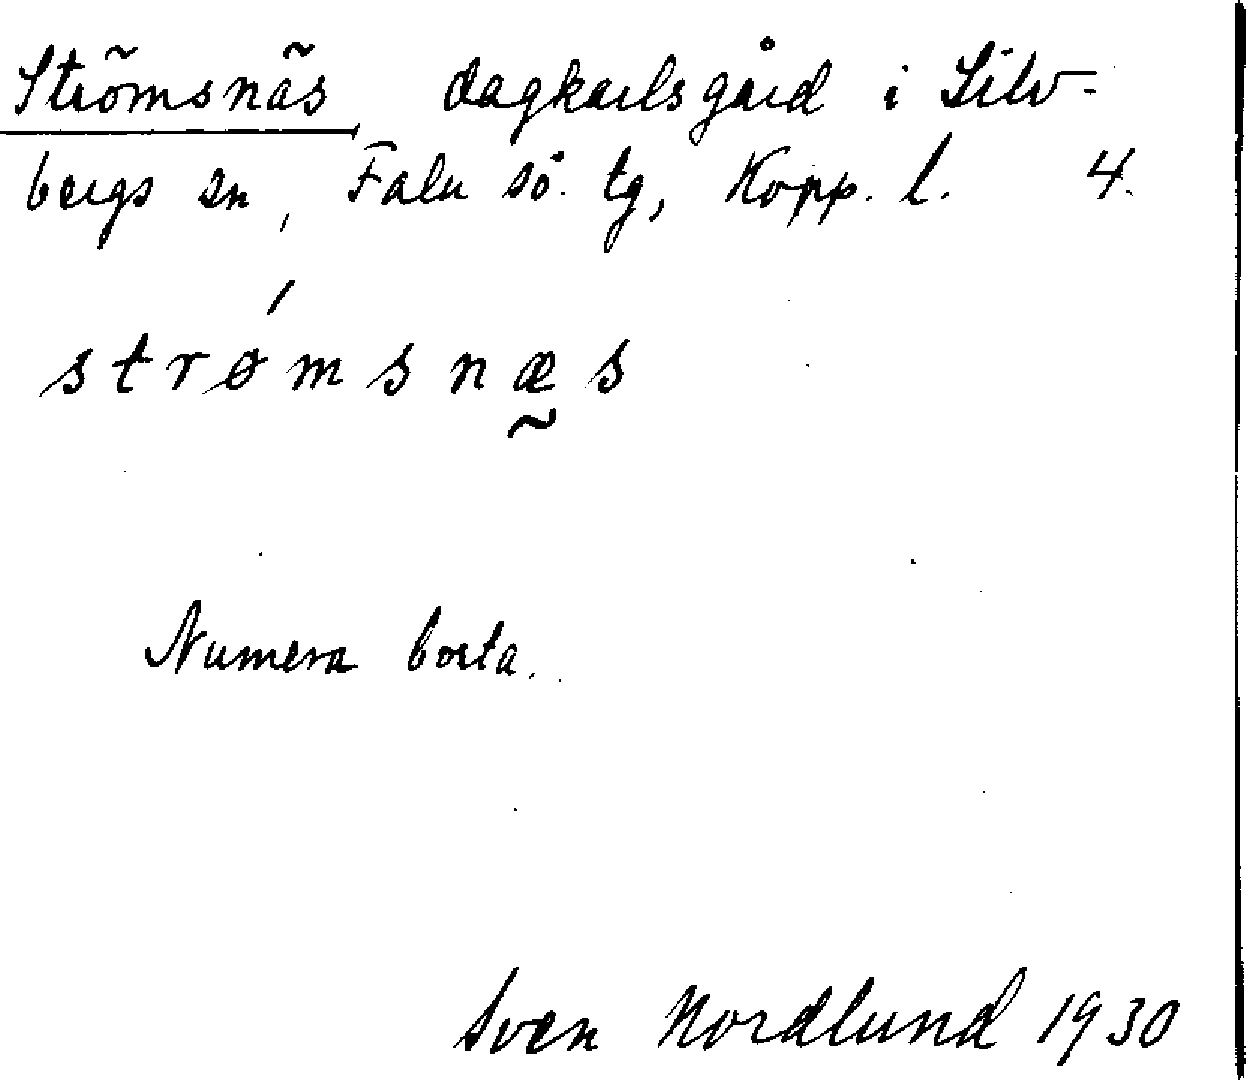 Strömsnäs dagkarlsgård i Silv-
bergs sn, Falu sö. tg, Kopp. l. 4.
strǿmsnæ̰s
Numera borta.
Sven Nordlund 1930